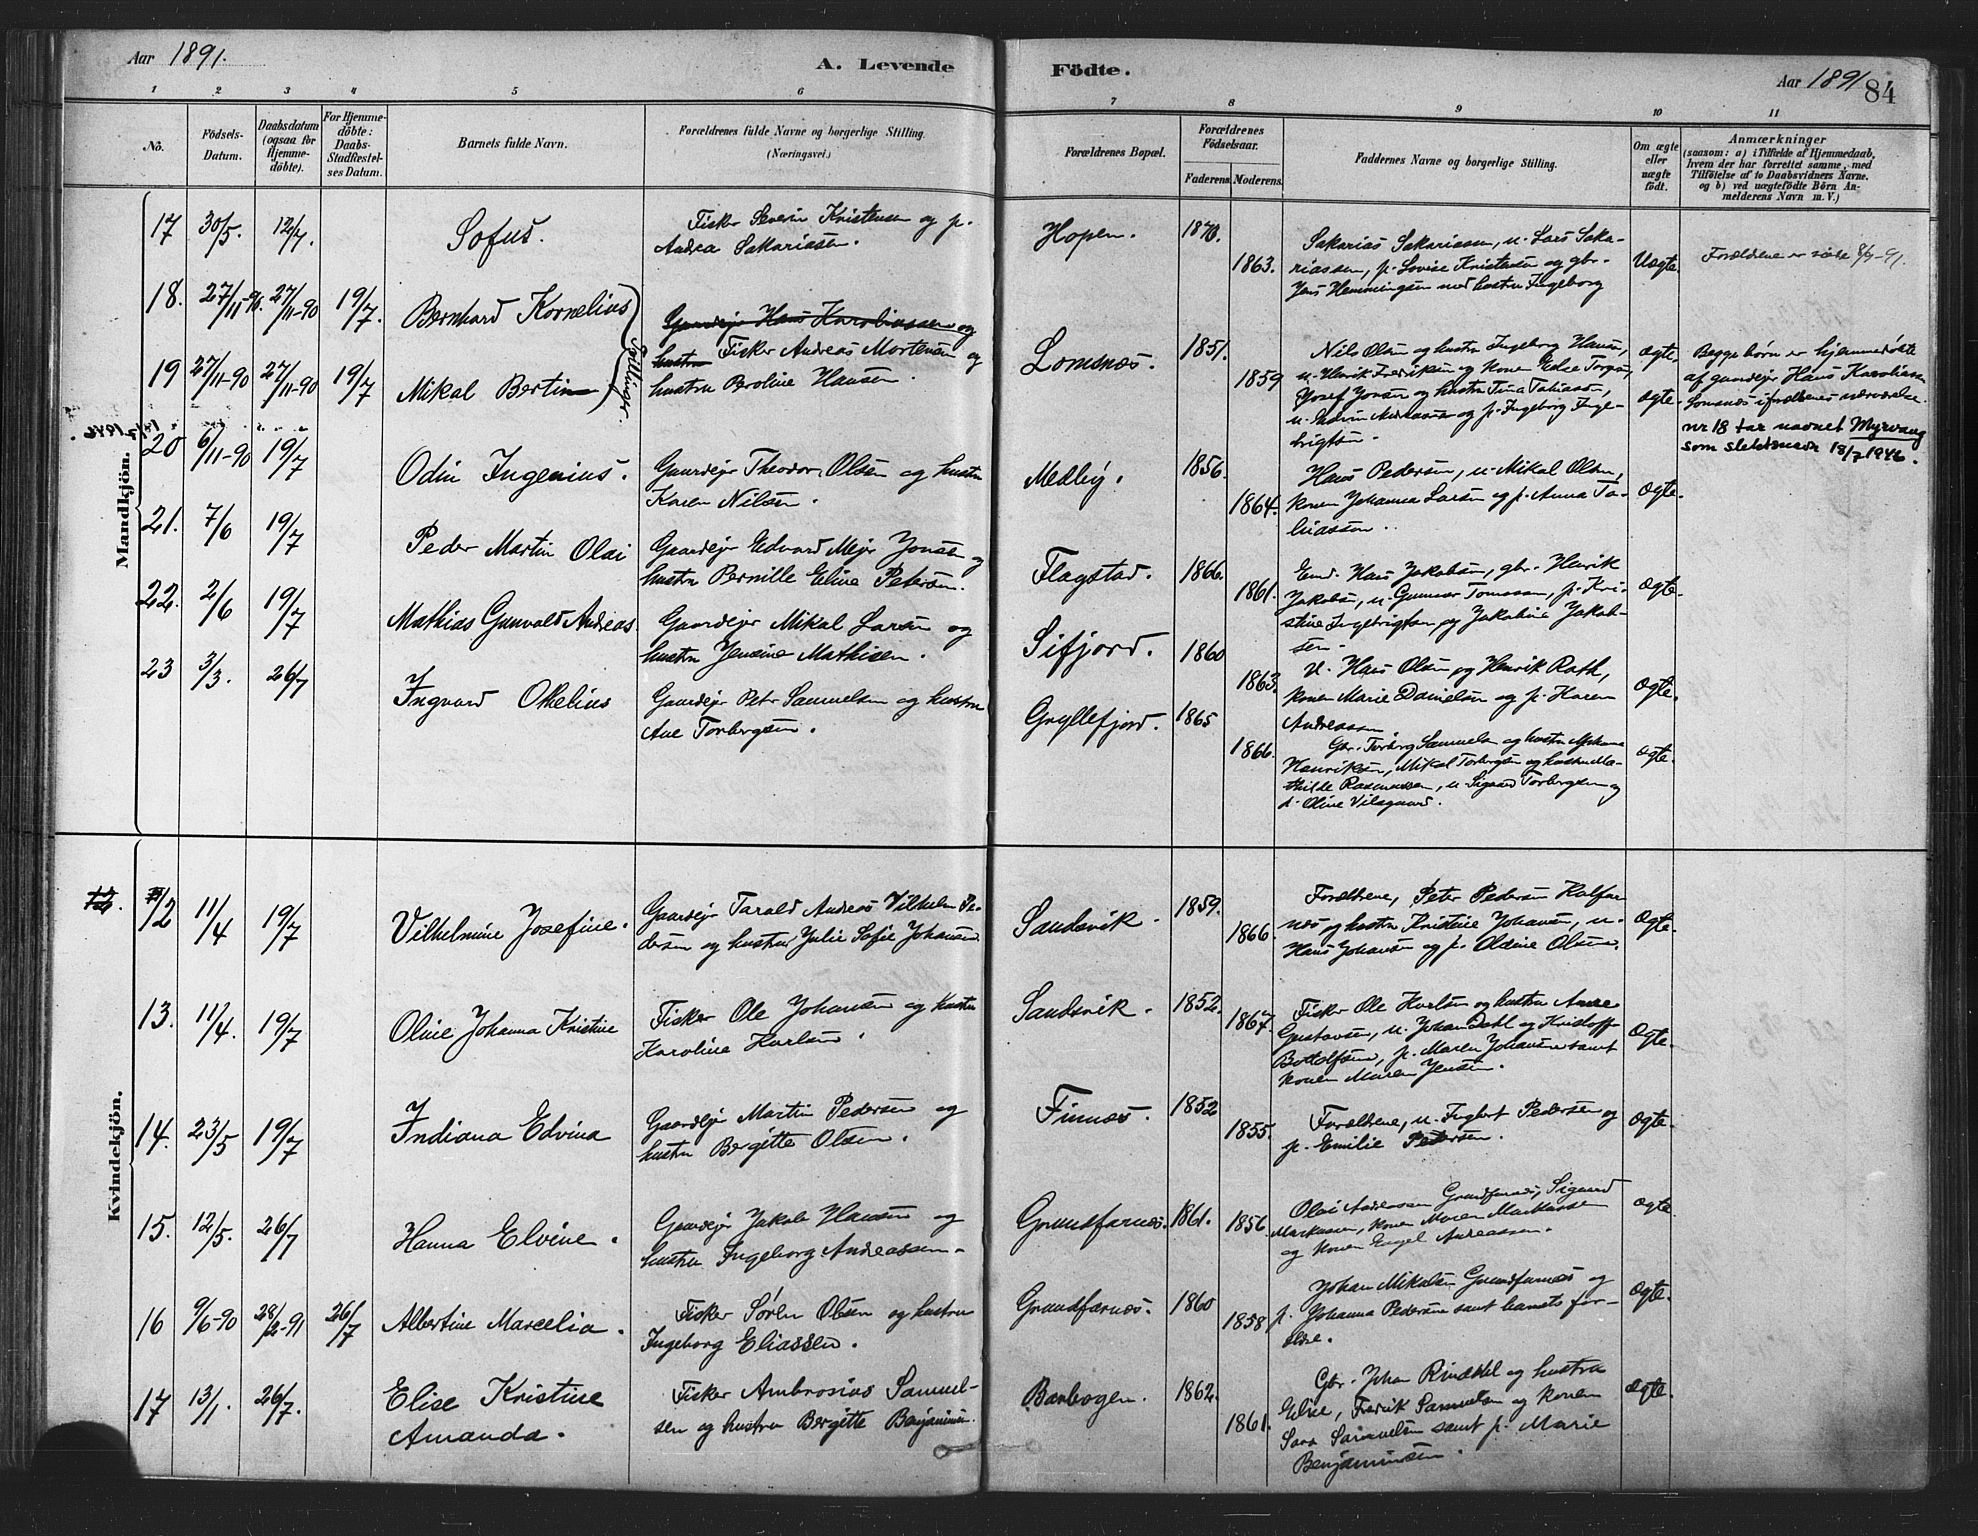 Aar 1891.
A. Levende Födte.
Aar 1891
84
1 2 3 4 5 6 7 8 9 10 11
No.
Födsels-
Datum.
Daabsdatum
(ogsaa for
Hjemme-
döbte).
For Hjemme-
döbte:
Daabs-
Stadfæstel-
ses Datum.
Barnets fulde Navn.
Forældrenes fulde Navne og borgerlige Stilling.
(Næringsvei.)
Forældrenes Bopæl.
Forældrenes
Födselsaar.
Faderens. Moderens.
Faddernes Navne og borgerlige Stilling.
Om ægte
eller
uægte
födt.
Anmærkninger
(saasom: a) i Tilfælde af Hjemmedaab,
hvem der har forrettet samme, med
Tilföielse af to Daabsvidners Navne.
og b) ved uægtefödte Börn An-
melderens Navn m. V.)
Mandkjön.
17 30/5. 12/7. Sofus.
Fisker Severin Kristensen og p.
Andrea Sakariasen.
Hopen. 1870. 1863.
Sakarias Sakariassen, u. Lars Saka-
riassen, p. Lovise Kristensen og gbr.
Jens Hemmingsen med hustru Ingeborg
Uægte.
Forældrene er viede 8/9-91.
18. 27/11-90. 27/11-90 19/7. Bernhard Kornelius
Tvillinger
Gaardejr Hans Karoliussen og
hustru Fisker Andreas Mortensen og
hustru Beroline Hansen.
19 27/11-90 27/11-90 19/7 Mikal Bertin
Lomsnæs. 1851. 1859
Nils Olsen og hustru Ingeborg Hansen,
u. Henrik Fredriksen og konen Elise
Josef Jonsen og hustru Tina Tobiassen,
u. Andreassen og p. Ingeborg Inge-
brigtsen.
Ægte
Ægte.
Begge børn er hjemmedøbte
af gaardejr Hans Karoliussen
Lomsnæs i forældrenes nærværelse.
nr 18 tar navnet Myrvang
som slektsnavn 18/7 1946.
20 6/11-90 19/7 Odin Ingenius.
Gaardejr Theodor Olsen og hustru
Karen Nilsen.
Medby. 1856. 1864.
Hans Pedersen, u. Mikal Olsen,
konen Johanna Larsen og p. Anna To-
biassen.
Ægte.
21. 7/6 19/7 Peder Martin Olai
Gaardejr Edvard Mejer Jonsen og
hustru Pernille Eline Petersen.
Flagstad. 1866. 1861.
Em. Hans Jakobsen, gbr. Henrik
Jakobsen, u. Gunnar Tomassen, p. Kri-
stine Ingebrigtsen og Jakobine Jakob-
sen.
Ægte.
22. 2/6 19/7 Mathias Gunvald Andreas
Gaardejr Mikal Larsen og
hustru Jensine Mathisen.
Sifjord. 1860 1863.
U. Hans Olsen og Henrik Rath,
konen Marie Danielsen og p. Karen
Andreassen
Ægte.
23 3/3. 26/7 Ingvard Otelius
Gaardejr Peter Samuelsen og hustru
Ane Torbergsen.
Gryllefjord. 1865 1866.
Gbr. Torberg Samuelsen og hustru
Henriksen, Mikal Torbergsen og hustru Ma-
thilde Rasmussen, u. Sigvard Torbergsen og
p. Oline Vilsgaard.
Ægte.
Kvindekjön.
12 11/4 19/7 Vilhelmine Josefine.
Gaardejr Tarald Andreas Vilhelm Pe-
dersen og hustru Julie Sofie Johansen
Sandsvik. 1859. 1866.
Forældrene, Peter Pedersen Kalfar-
næs og hustru Kristine Johansen, u.
Hans Johansen og p. Oldine Olsen.
Ægte.
13. 11/4. 19/7 Oline Johanna Kristine
Fisker Ole Johansen og hustru
Karoline Karlsen.
Sandsvik. 1852. 1867.
Fisker Ole Karlsen og hustru Anne
Gustavsen, u. Johan Dahl og Kristoff
Bottolfsen, p. Maren Johansen samt
konen Maren Jensen.
Ægte.
14. 23/5 19/7 Indiana Edvina
Gaardejr Martin Pedersen og
hustru Bergitte Olsen.
Finnæs. 1852 1855.
Forældrene, u. Ingbert Pedersen og
p. Emilie Petersen.
Ægte.
15. 12/5. 26/7 Hanna Elvine.
Gaardejr Jakob Hansen og
hustru Ingeborg Andreassen.
Grundfarnæs. 1861. 1856.
Olai Andreassen Grundfarnæs, Sigvard
Markussen, konen Maren Markussen
og konen Engel Andreassen.
Ægte.
16 9/6-90 28/2-91 26/7 Albertine Marcelia.
Fisker Søren Olsen og hustru
Ingeborg Eliassen.
Grundfarnæs. 1860 1858
Johan Mikalsen Grundfarnæs og
p. Johanna Pedersen samt barnets for-
ældre.
Ægte.
17 13/1. 26/7. Elise Kristine
Amanda.
Fisker Ambrosius Samuel-
sen og hustru Bergitte Benjaminsen.
Barbogen. 1862. 1861.
Gbr. Johan Rinddal og hustru
Eline, Fredrik Samuelsen og konen
Sara Samuelsen samt p. Marie
Benjaminsen.
Ægte.